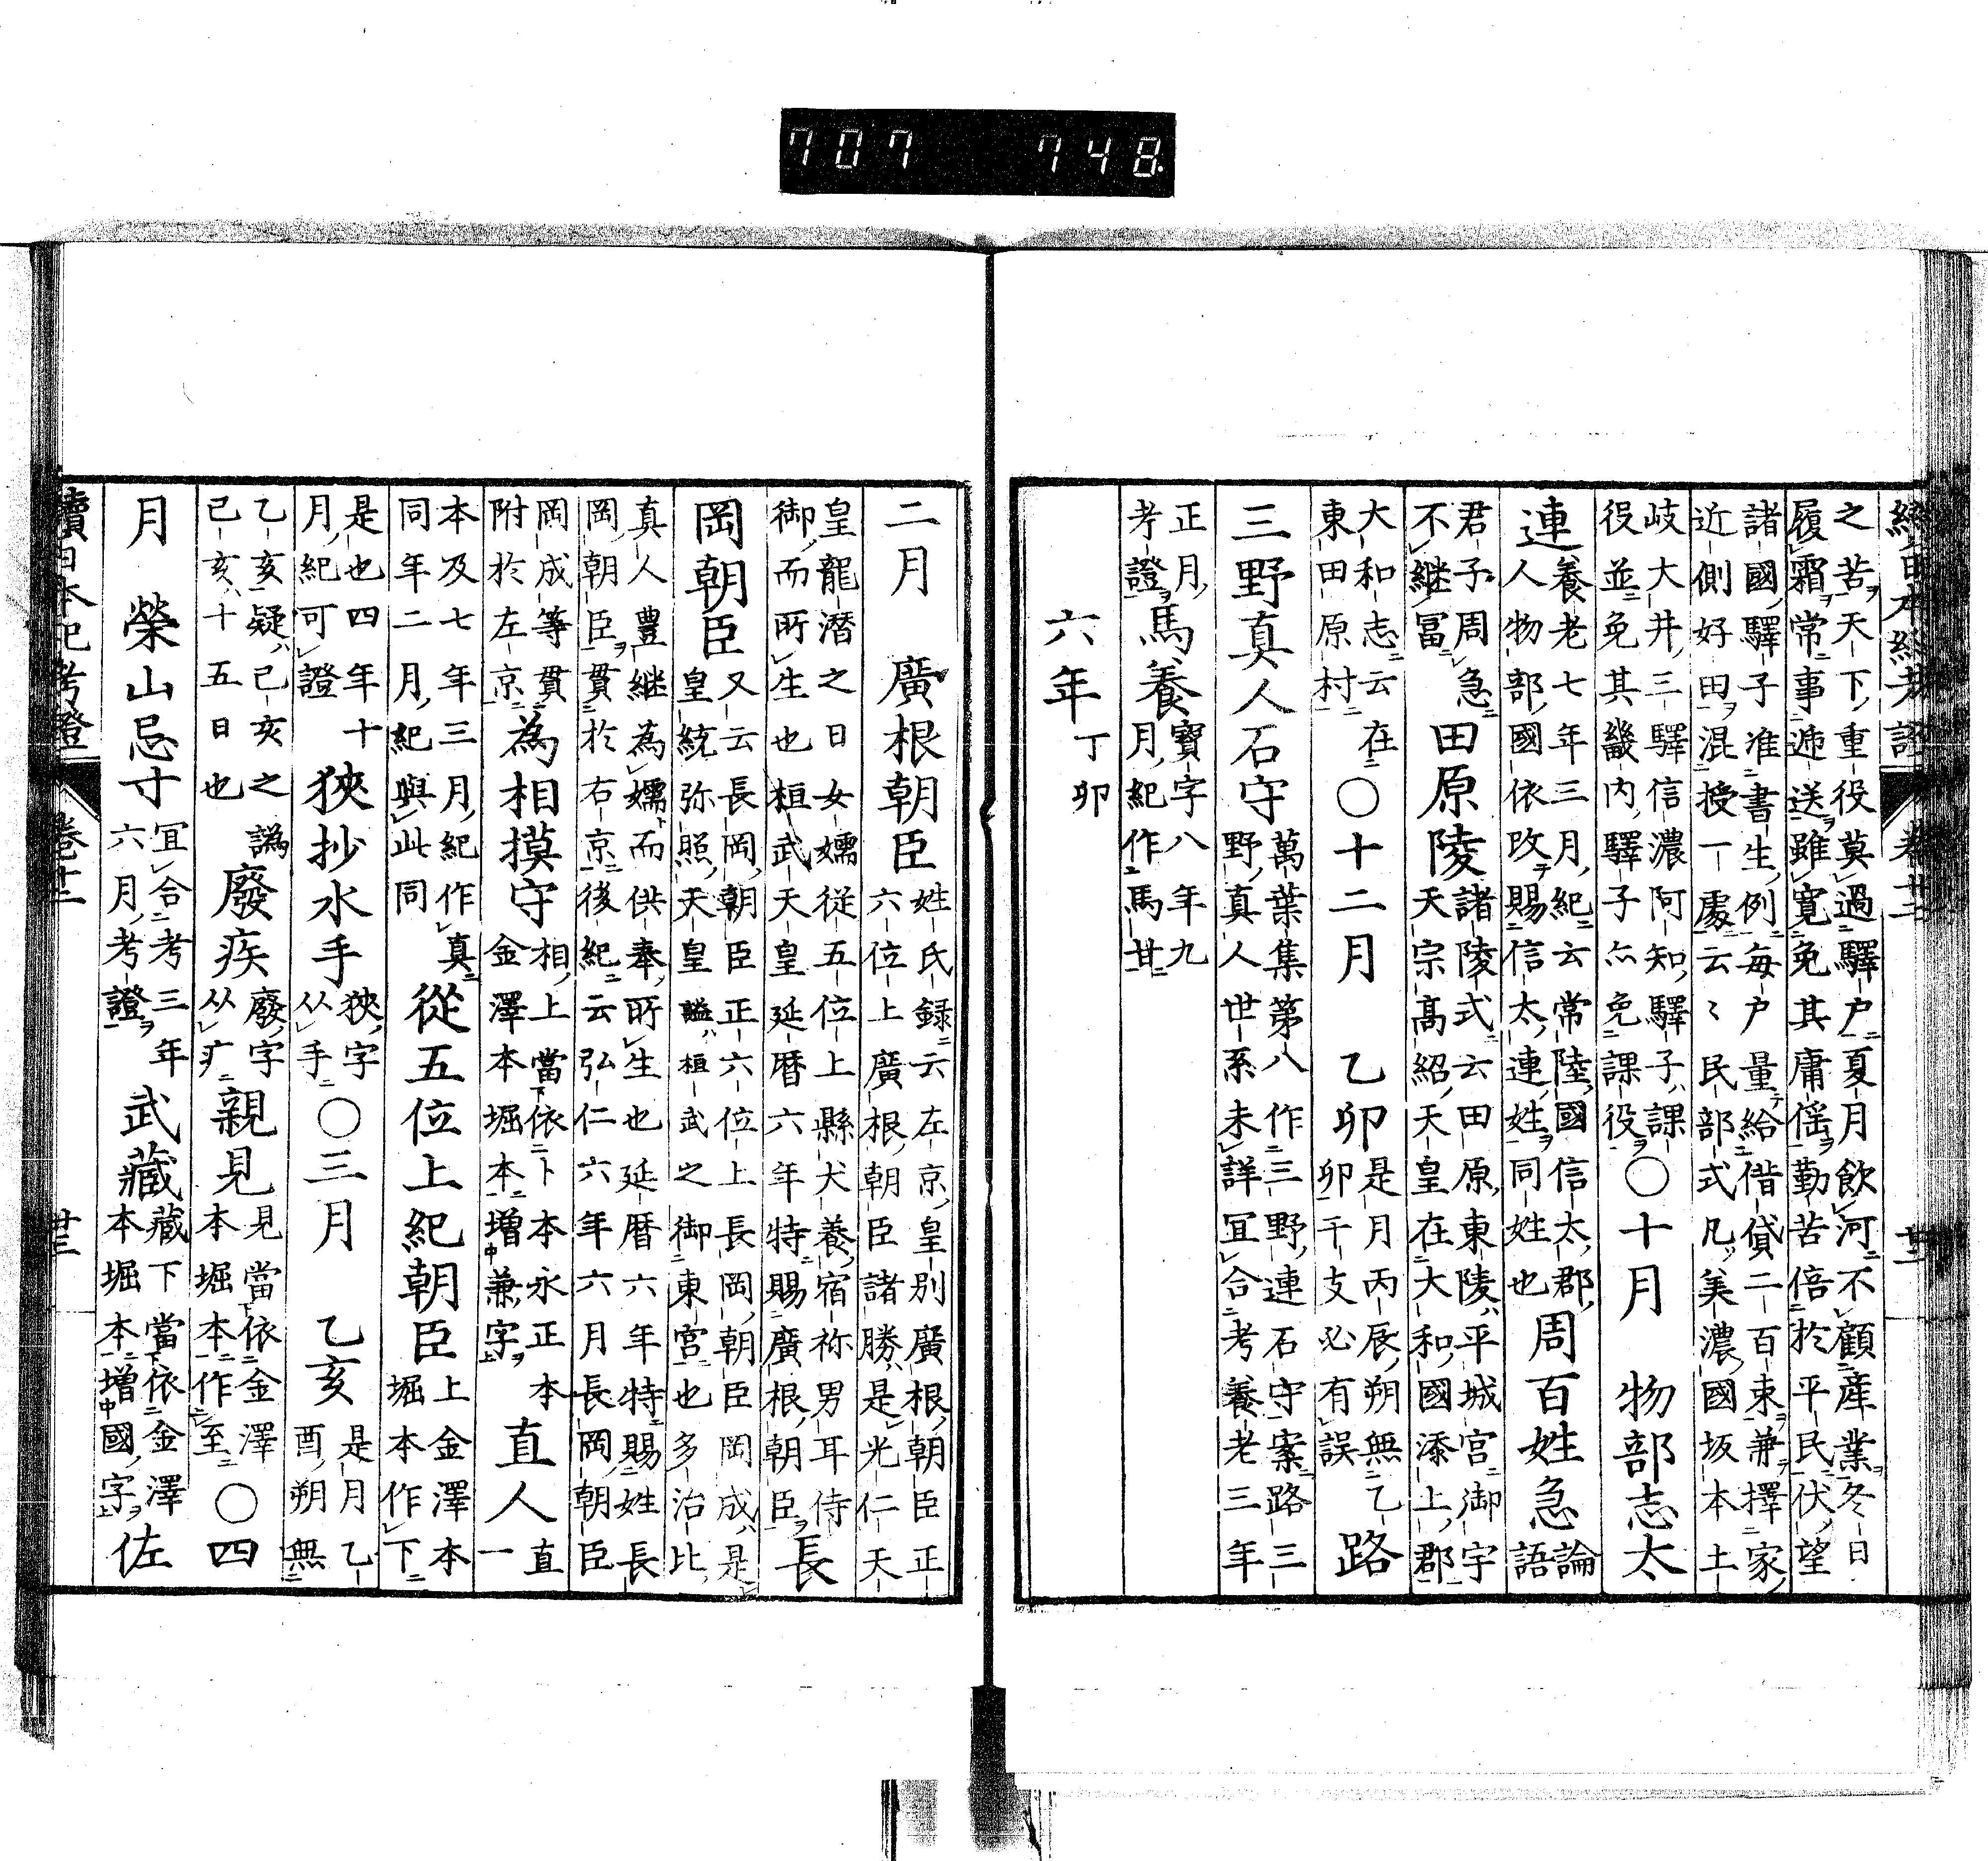 707 748
續日本紀考證 卷十二
之苦天下重役莫過驛戸夏月飲河不顧産業冬日
履霜常事逓送雖寛免其庸傜勤苦倍於平民伏望
諸國驛子准書生例毎戸量給借貸二百束兼擇家
近側好田混授一處云〻民部式凡美濃國坂本土
岐大井三驛信濃阿知驛子課
役並免其畿内驛子亦免課役
〇十月 物部志太
連
養老七年三月紀云常陸國信太郡
人物部國依改賜信太連姓同姓也
周百姓急
論語
君子周急
不継冨
田原陵
諸陵式云田原東陵平城宮御宇
天宗髙紹天皇在大和國添上郡
大和志云在
東田原村
〇十二月 乙卯
是月丙辰朔無乙
卯干支必有誤
路
三野真人石守
萬葉集第八作三野連石守案路三
野真人世系未詳冝合考養老三年
正月
考證
馬養
寶字八年九
月紀作馬甘
六年丁卯
二月 廣根朝臣
姓氏録云左京皇別廣根朝臣正
六位上廣根朝臣諸勝是光仁天
皇龍潛之日女嬬從五位上縣犬養宿祢男耳侍
御而所生也桓武天皇延暦六年特賜廣根朝臣
長
岡朝臣
又云長岡朝臣正六位上長岡朝臣岡成是
皇統弥照天皇謚桓武之御東宮也多治比
真人豊継為嬬而供奉所生也延暦六年特賜姓長
岡朝臣貫於右京後紀云弘仁六年六月長岡朝臣
岡成等貫
附於左京
為相摸守
相上當依卜本永正本
金澤本堀本増兼字
直人
直一
本及七年三月紀作真
同年二月紀與此同
從五位上紀朝臣
上金澤本
堀本作下
是也四年十
月紀可證
狹抄水手
狹字
从手
〇三月 乙亥
是月乙
酉朔無
乙亥疑己亥之譌
己亥十五日也
廢疾
廢字
从疒
親見
見當依金澤
本堀本作至
〇四
月 榮山忌寸
冝合考三年
六月考證
武藏
藏下當依金澤
本堀本増國字
佐
續日本紀考證 卷十二 廿三